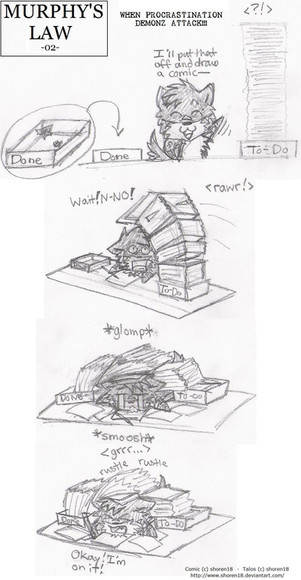 MURPHY'S
LAW
-02-
WHEN PROCRASTINATION
DEMONZ ATTACK!!!
<?!>
I'll put that
off and draw
a comic—
Done
Done
To-Do
Wait! N-NO!
<rawr!>
To-Do
*glomp*
Done
To-Do
*smoosh*
<grrr...>
rustle rustle
Done
To-Do
Okay! I'm
on it!
Comic (c) shoren18 - Talos (c) shoren18
http://www.shoren18.deviantart.com/